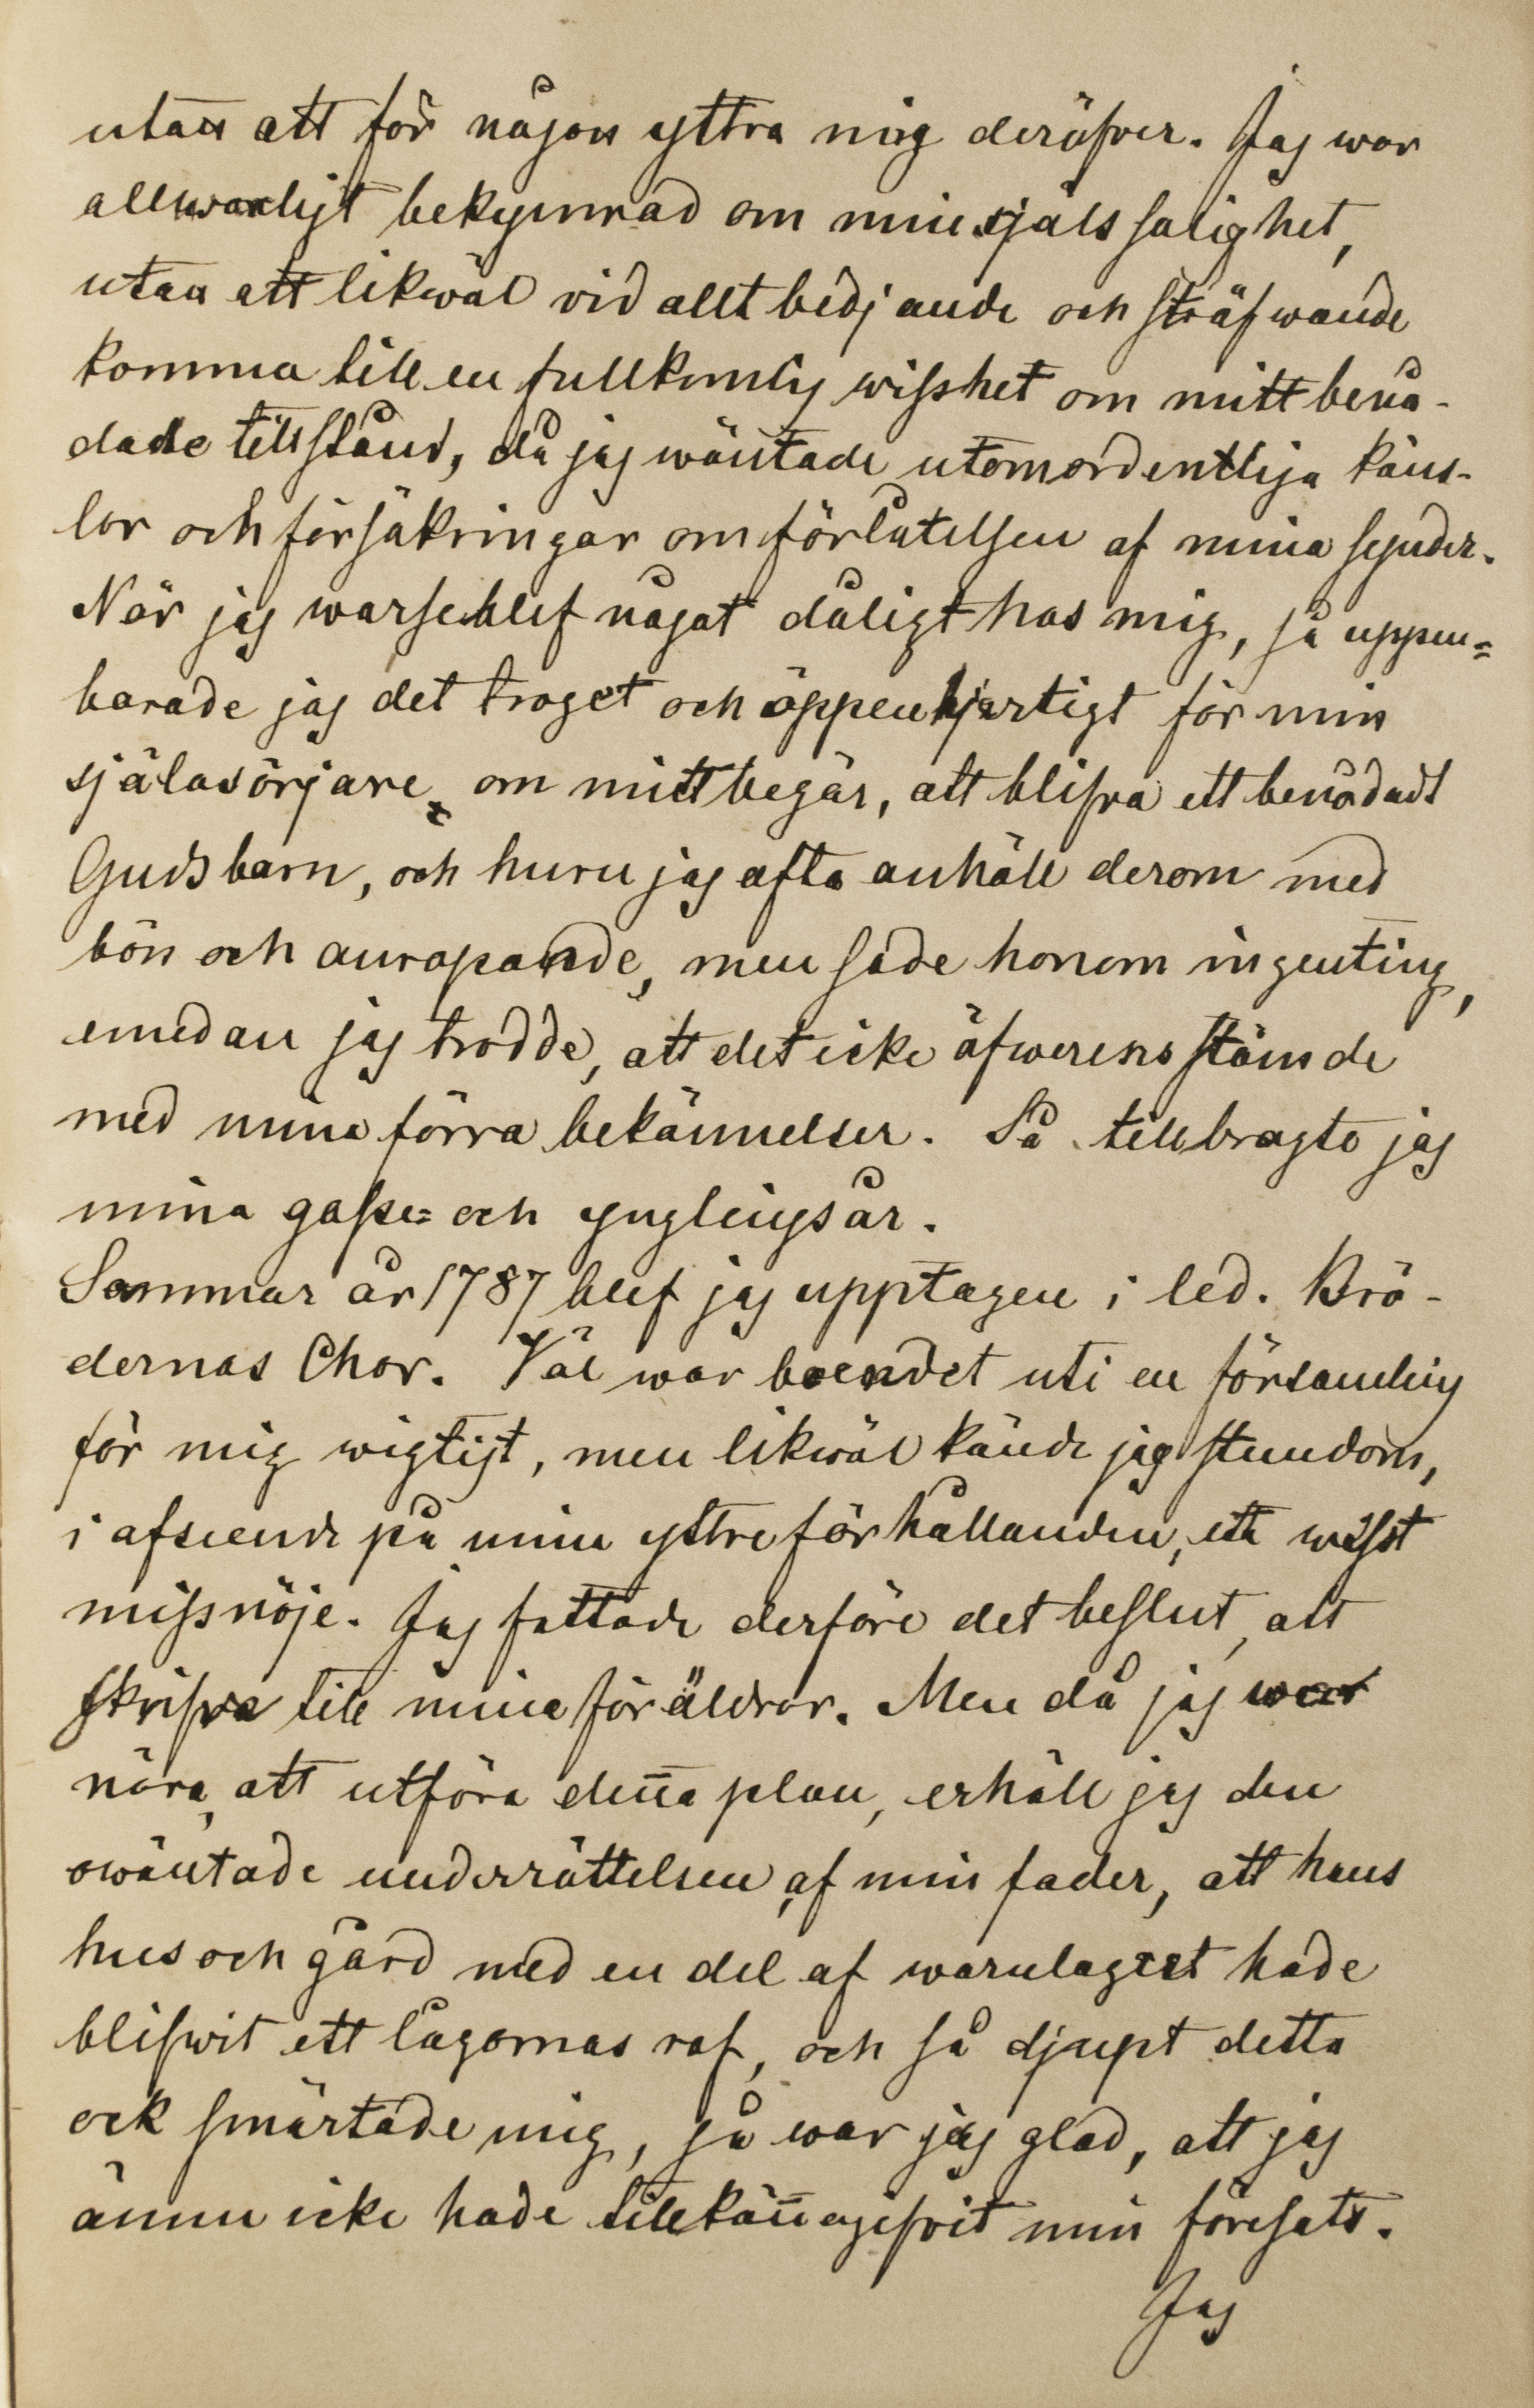 utan att för någon yttra mig deröfver. Jag war
allwarligt bekymrad om min själs salighet,
utan att likwäl vid allt bedjande och sträfwande
komma till en fullkomlig wisshet om mitt benå-
dade tillstånd, då jag wäntade utomordentliga käns-
lor och försäkringar om förlåtelsen af mina synder.
När jag warseblef något dåligt hos mig, så uppen=
barade jag det troget och öppenhjertigt för min
själasörjare, om mitt begär, att blifva ett benådadt
Guds barn, och huru jag ofta anhöll derom med
bön och anropande, men sade honom ingenting,
emedan jag trodde, att det icke öfwerensstämde
med mina förra bekännelser. Så tillbragte jag
mina gosse= och ynglingsår.
Sommar år 1787 blef jag upptagen i led. Brö-
dernas Chor. Väl war boendet uti en församling
för mig wigtigt, men likwäl kände jag stundom,
i afseende på mina yttre förhållanden, ett wisst
missnöje. Jag fattade derföre det beslut, att
skrifva till mina föräldrar. Men då jag war
nära, att utföra denna plan, erhöll jag den
owäntade underrättelsen af min fader, att hans
hus och gård med en del af warulagret hade
blifwit ett lågornas rof, och så djupt detta
ock smärtade mig, så war jag glad, att jag
ännu icke hade tillkännagifvit min föresats.
Jag